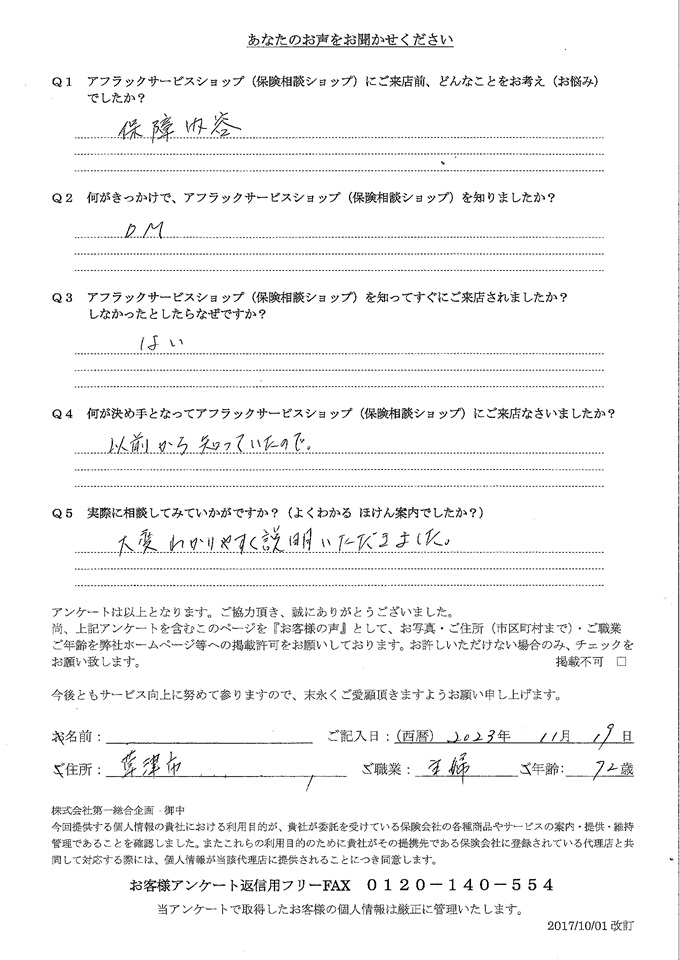 あなたのお声をお聞かせください
Q1 アフラックサービスショップ（保険相談ショップ）にご来店前、どんなことをお考え（お悩み）
でしたか？
保障内容
Q2 何がきっかけで、アフラックサービスショップ（保険相談ショップ）を知りましたか？
DM
Q3 アフラックサービスショップ（保険相談ショップ）を知ってすぐにご来店されましたか？
しなかったとしたらなぜですか？
はい
Q4 何が決め手となってアフラックサービスショップ（保険相談ショップ）にご来店なさいましたか？
以前から知っていたので。
Q5 実際に相談してみていかがですか？（よくわかる ほけん案内でしたか？）
大変わかりやすく説明いただきました。
アンケートは以上となります。ご協力頂き、誠にありがとうございました。
尚、上記アンケートを含むこのページを『お客様の声』として、お写真・ご住所（市区町村まで）・ご職業
ご年齢を弊社ホームページ等への掲載許可をお願いしております。お許しいただけない場合のみ、チェックを
お願い致します。 掲載不可 □
今後ともサービス向上に努めて参りますので、末永くご愛顧頂きますようお願い申し上げます。
お名前： ご記入日：（西暦）2023年 11月 19日
ご住所： 草津市 ご職業： 主婦 ご年齢： 72歳
株式会社第一総合企画 御中
今回提供する個人情報の貴社における利用目的が、貴社が委託を受けている保険会社の各種商品やサービスの案内・提供・維持
管理であることを確認しました。またこれらの利用目的のために貴社がその提携先である保険会社に登録されている代理店と共
同して対応する際には、個人情報が当該代理店に提供されることにつき同意します。
お客様アンケート返信用フリーFAX 0120－140－554
当アンケートで取得したお客様の個人情報は厳正に管理いたします。
2017/10/01 改訂